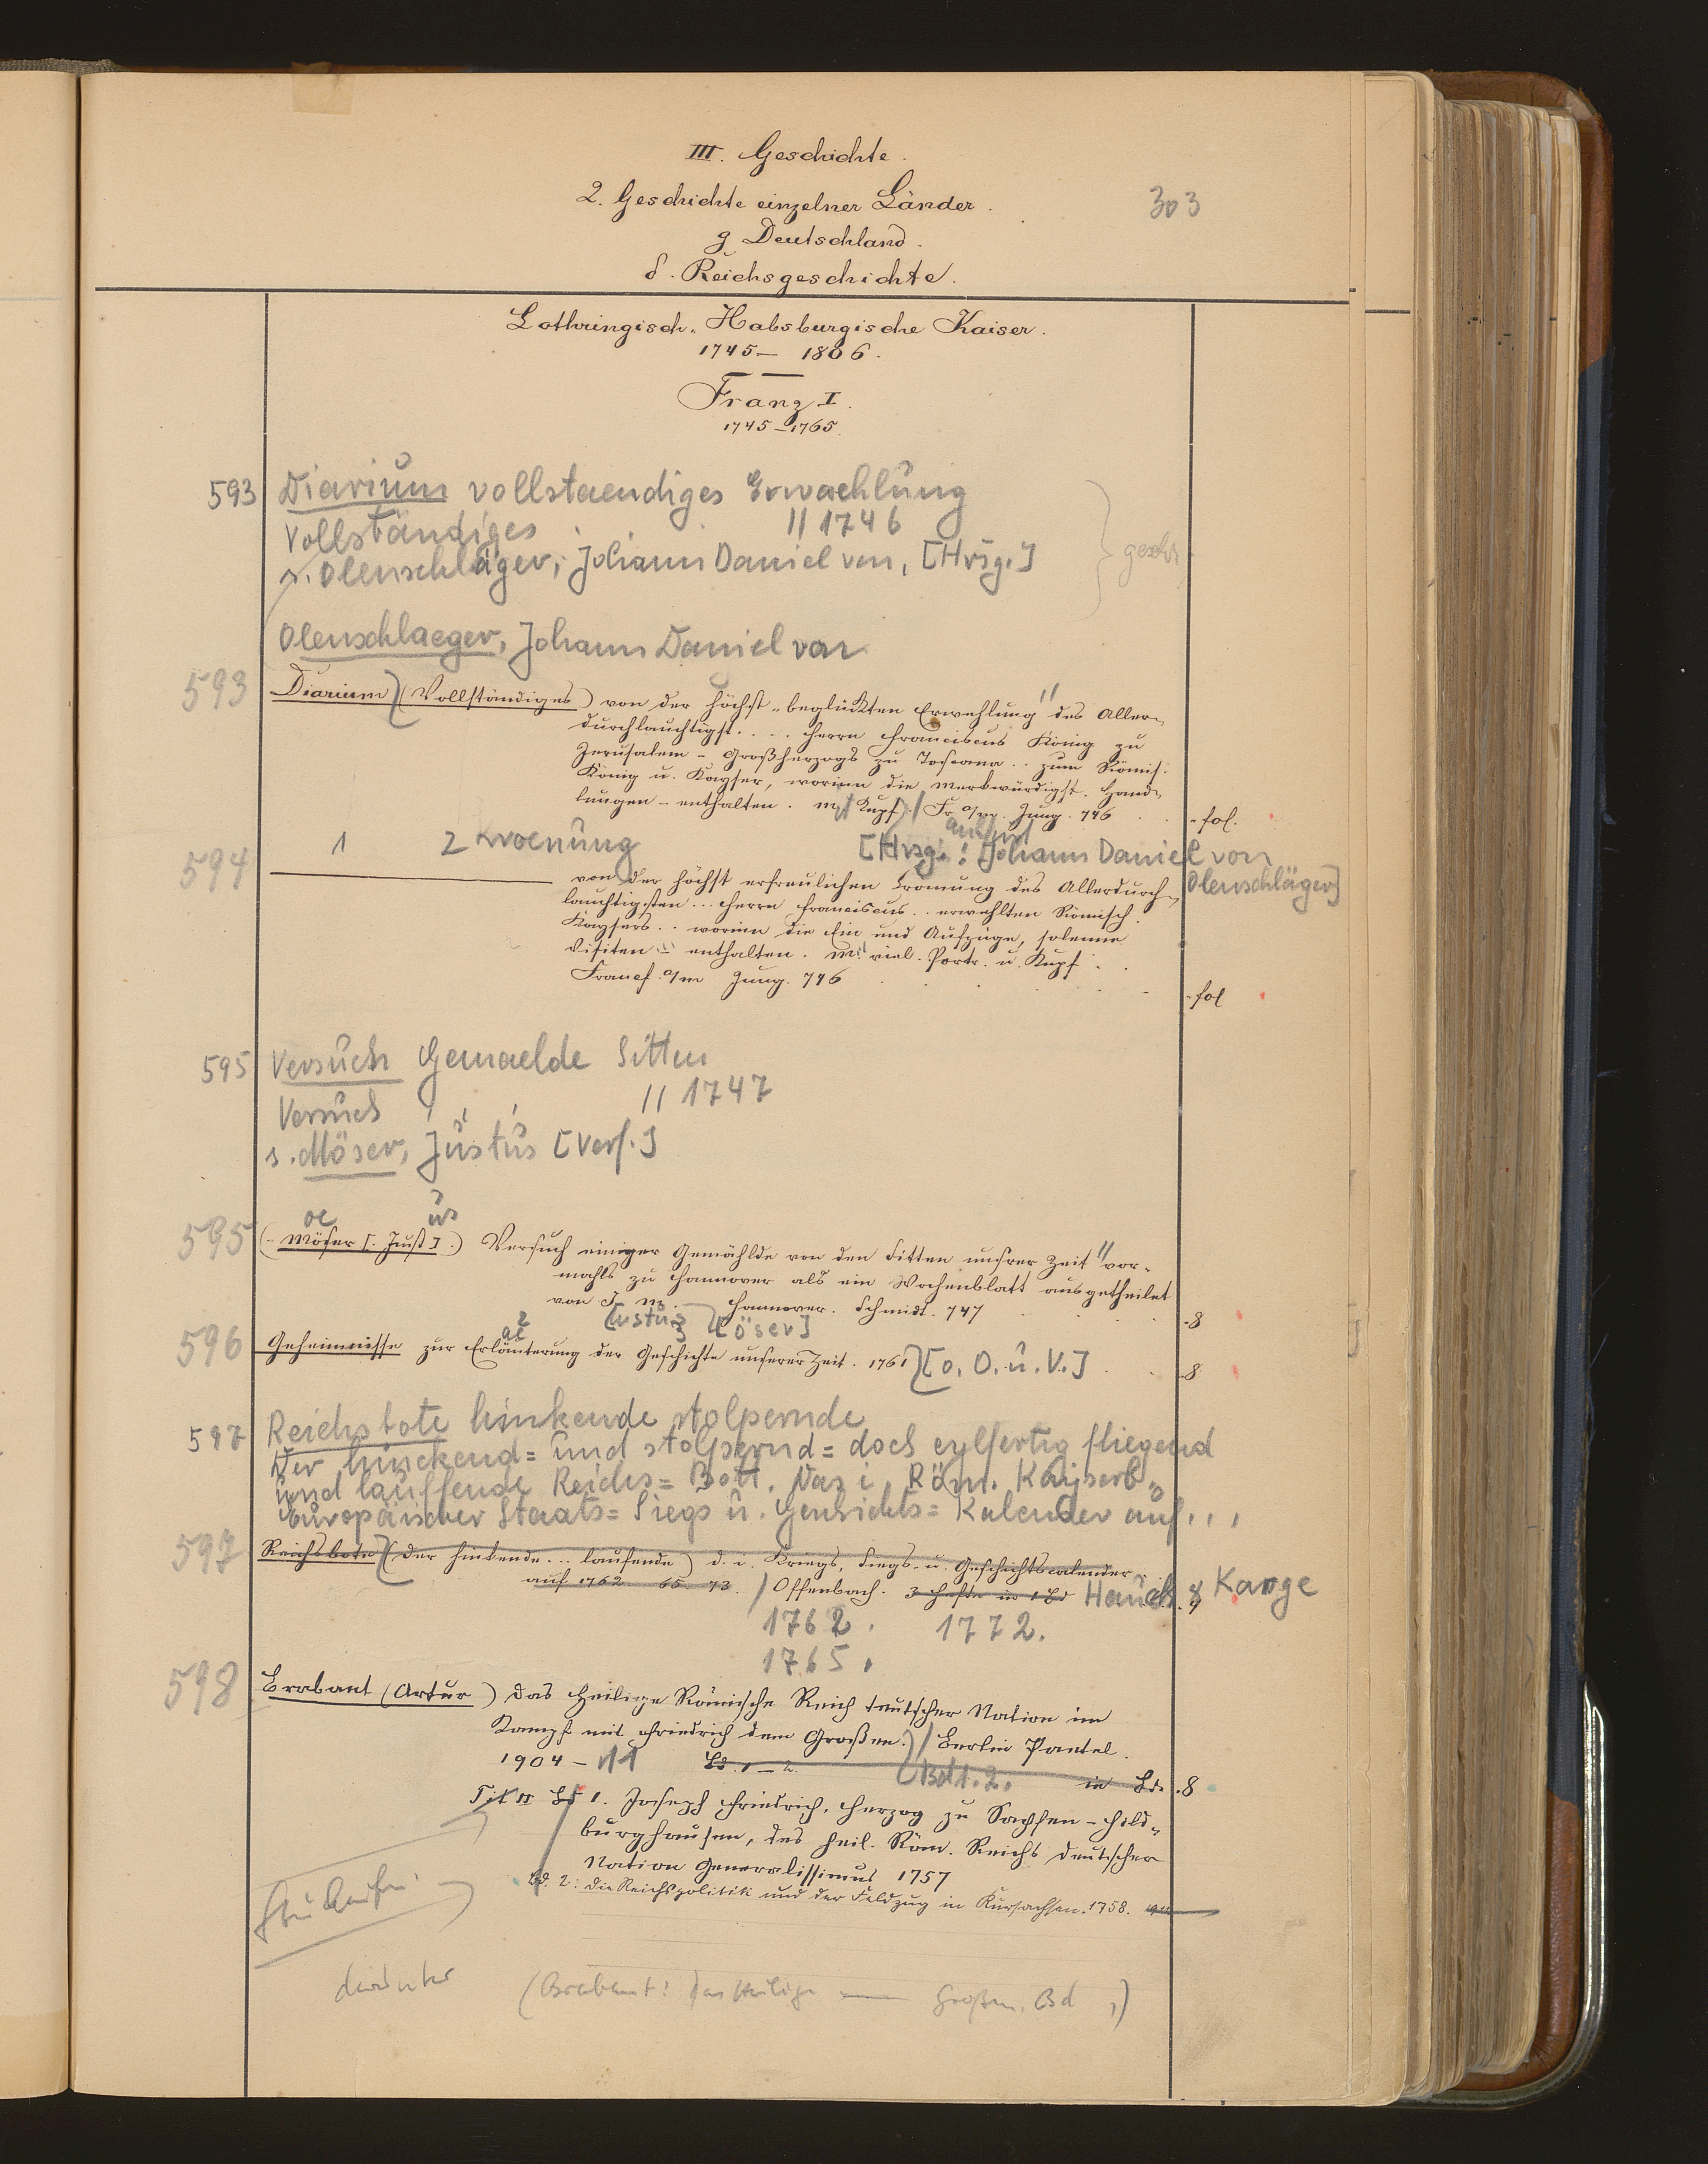 III. Geschichte.
2. Geschichte einzelner Länder.
303
g Deutschland.
δ. Reichsgeschichte.
Lothringisch-Habsburgische Kaiser.
1745 — 1806.
Franz I.
1745 – 1765.
593 Diarium vollstaendiges Erwaehlung
Vollständiges // 1746
s. Olenschläger, Johann Daniel von, [Hrsg.]
Olenschlaeger, Johann Daniel von
593 Diarium (Vollständiges) von der höchst-beglückten Erwehlung // des Aller-
durchlauchtigst.... Herrn Franciscus König zu
Jerusalem – Großherzogs zu Toscana .. zum Römis.
König u. Kayser, worinn die merkwürdigst. Hand-
lungen – enthalten. mit Kupf. / Fr. a/m. Jung. 746 . . fol.
594 1 2 Kroenung [Hrsg.: Johann Daniel von
Olenschläger]
von der höchst erfreulichen Crönung des Allerdurch-
lauchtigsten ... Herrn Franciscus .. erwehlten Römisch.
Kaysers .. worinn die Ein und Aufzüge, solenne
Visiten enthalten. mit viel. Portr. u. Kupf.
Francf. a/m Jung. 746 . . fol
595 Versuch Gemaelde Sitten
Versuch // 1747
s. Möser, Justus [Verf.]
oe us
595 (– Möser [. Just] .) Versuch einiger Gemählde von den Sitten unsrer Zeit // vor-
mahls zu Hannover als ein Wochenblatt ausgetheilet
von J. M. – Hannover. Schmidt. 747 . . 8
[ustus] [öser]
596 Geheimnisse zur Erläuterung der Geschichte unserer Zeit. 1761 [o. O. u. V.] . . 8
597 Reichsbote hinkende stolpernde
Der hinckend= und stolpernd= doch eylfertig fliegend
und lauffende Reichs=Bott. Das i. Röm. Kayserl.
Europäischer Staats= Siegs u. Geschichts= Kalender auf...
597 Reichsbote (der hinkende ... laufende) d. i. Kriegs, Siegs- u. Geschichtscalender
auf 1762 65 73. / Offenbach. 3 Hefte in 1 Bd Hauch & Karge
1762. 1772.
1765.
598 Brabant (Artur) Das Heilige Römische Reich teutscher Nation im
Kampf mit Friedrich dem Großen. / Berlin Paetel.
1904 – 11 Bd. 1–2. [Bd 1. 2. in Bd. . 8
Bd 1. Joseph Friedrich, Herzog zu Sachsen-Hild-
burghausen, des heil. Röm. Reichs deutscher
Nation Generalissimus 1757
Bd. 2: Die Reichspolitik und der Feldzug in Kursachsen. 1758.
darunter (Brabant: Das Heilige — Großen, Bd ,)